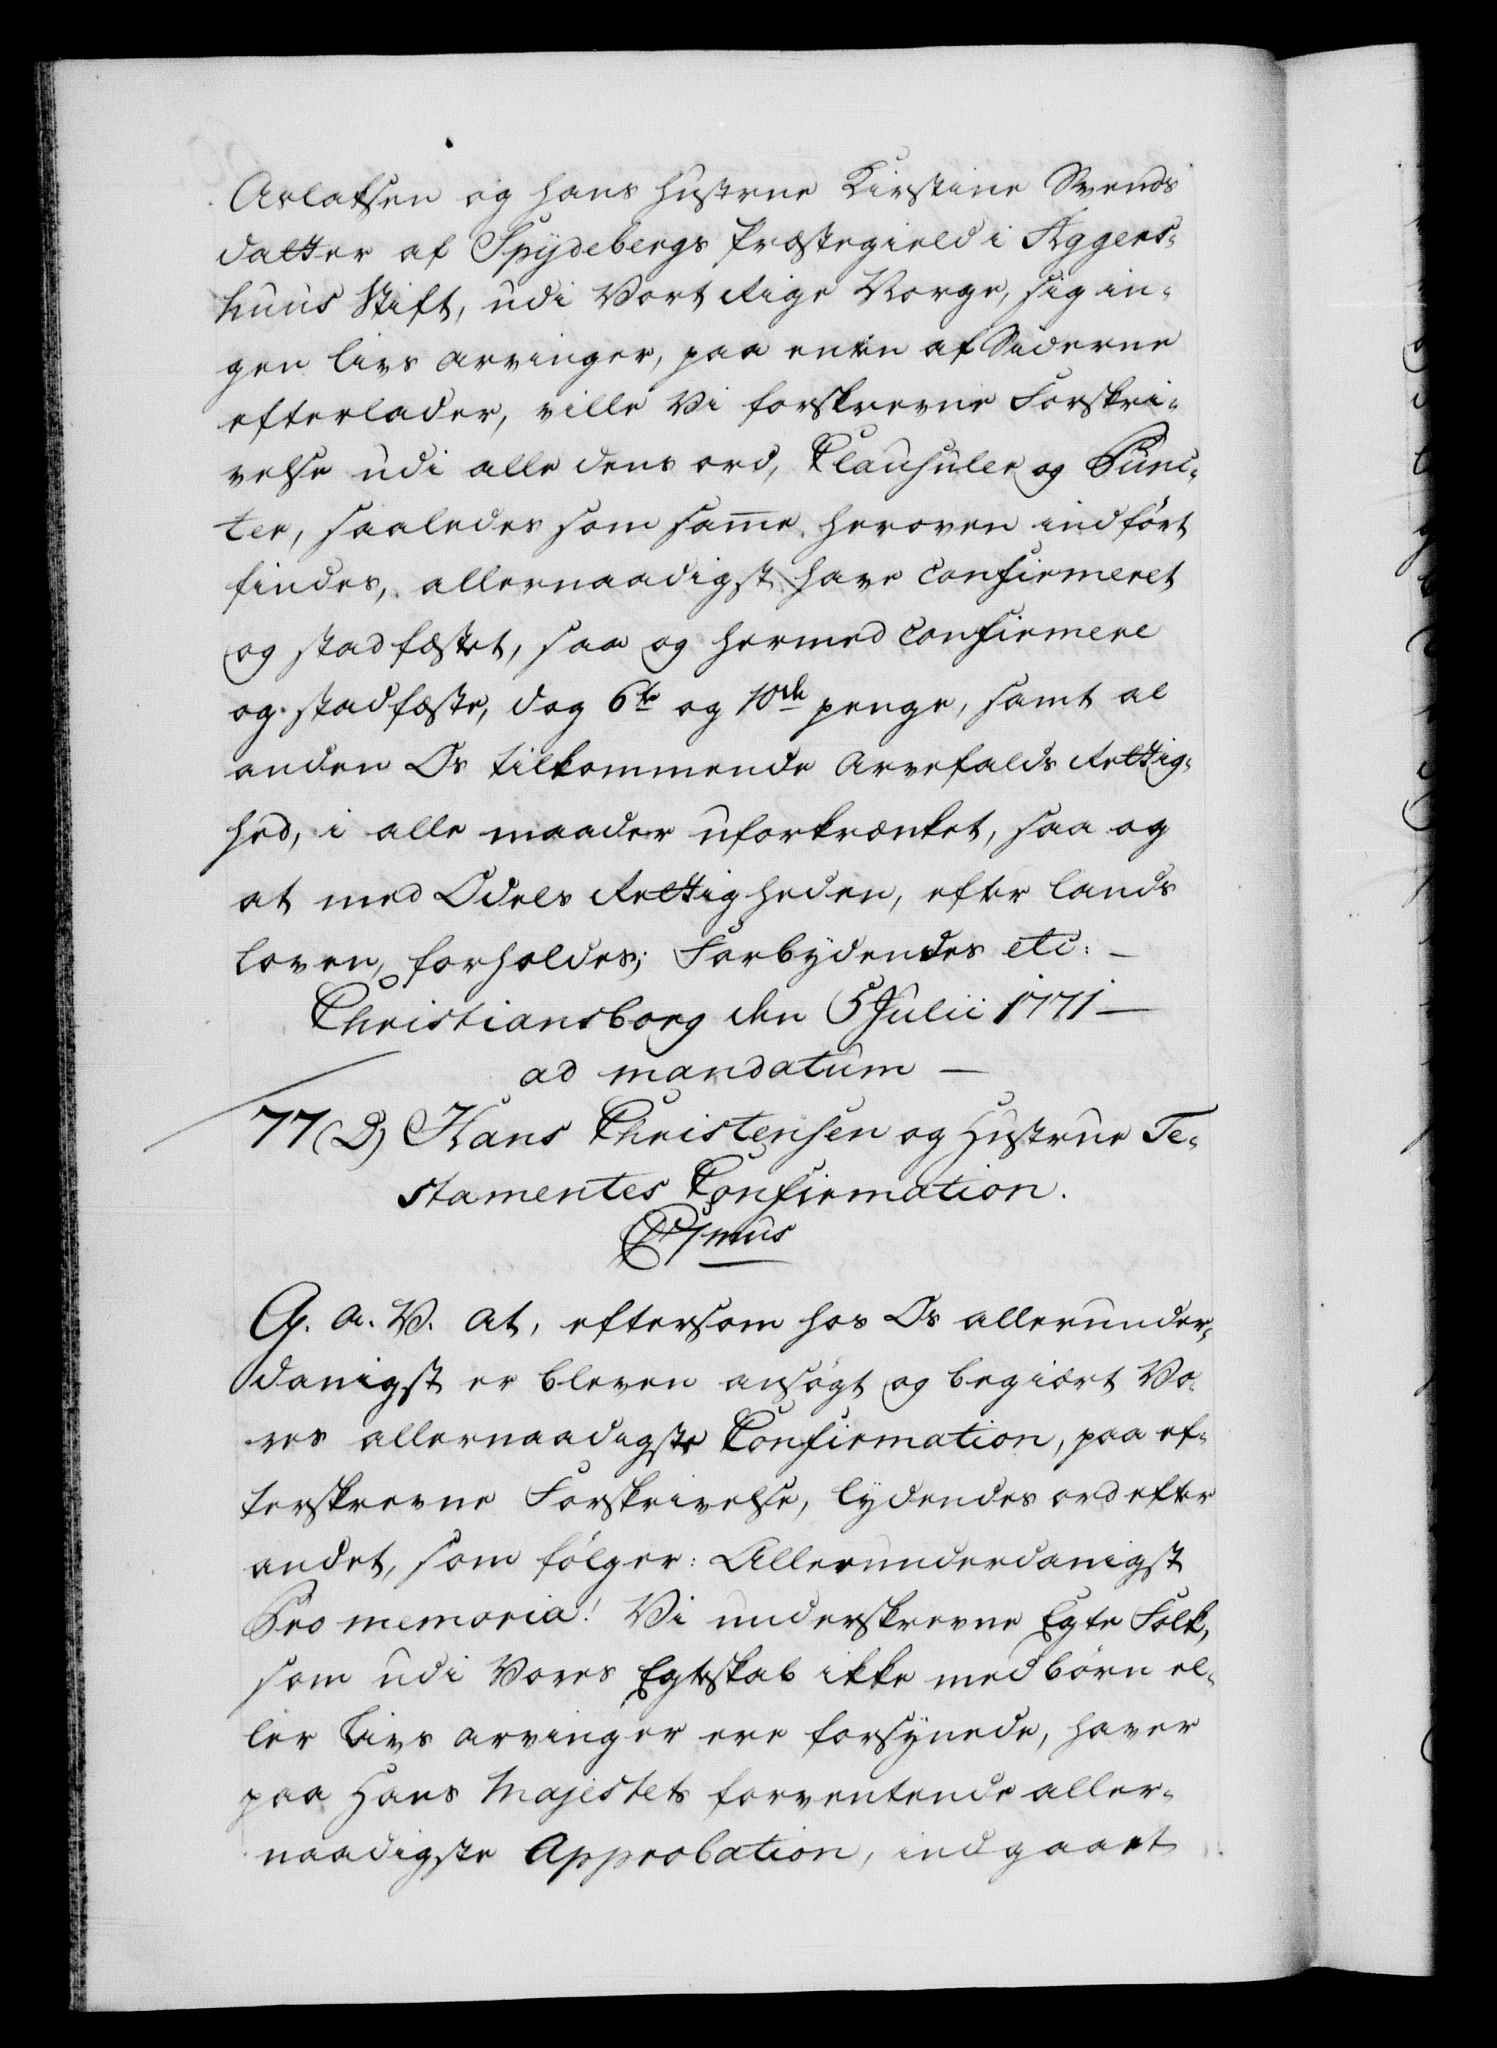 Aslaksen og hans Hustrue Kirstine Svends
datter af Spÿdebergs Præstegield i Aggers-
huus Stift, udi Vort Rige Norge, sig in-
gen livs arvinger, paa enten af Siderne
efterlader, ville Vi forskrevne Forskri-
velse udi alle dens ord, Clausuler og Punc-
ter, saaledes som samme heroven indført
findes, allernaadigst have confirmeret
og stadfæstet, saa og hermed confirmere
og stadfæste, dog 6te og 10de penge, samt al
anden Os tilkommende Arvefalds Rettig-
hed, i alle maader uforkrænket, saa og
at med Odels Rettigheden, efter lands
loven, forholdes; Forbydendes etc:
Christiansborg den 5 Julii 1771
ad mandatum
77 (D) Hans Christensen og Hustrue Te-
stamentes Confirmation.
C 7mus
G. a. V. at, eftersom hos Os allerunder-
danigst er bleven ansøgt og begiært Vo-
res allernaadigste Confirmation, paa ef-
terskrevne Forskrivelse, lydendes ord efter
andet, som følger: Allerunderdanigst
Pro memoria! Vi underskrevne Egte Folk,
som udi Vores Egteskab ikke med børn el-
ler Livs arvinger ere forsÿnede, haver
paa Hans Majestets forventende aller-
naadigste Approbation, indgaaet